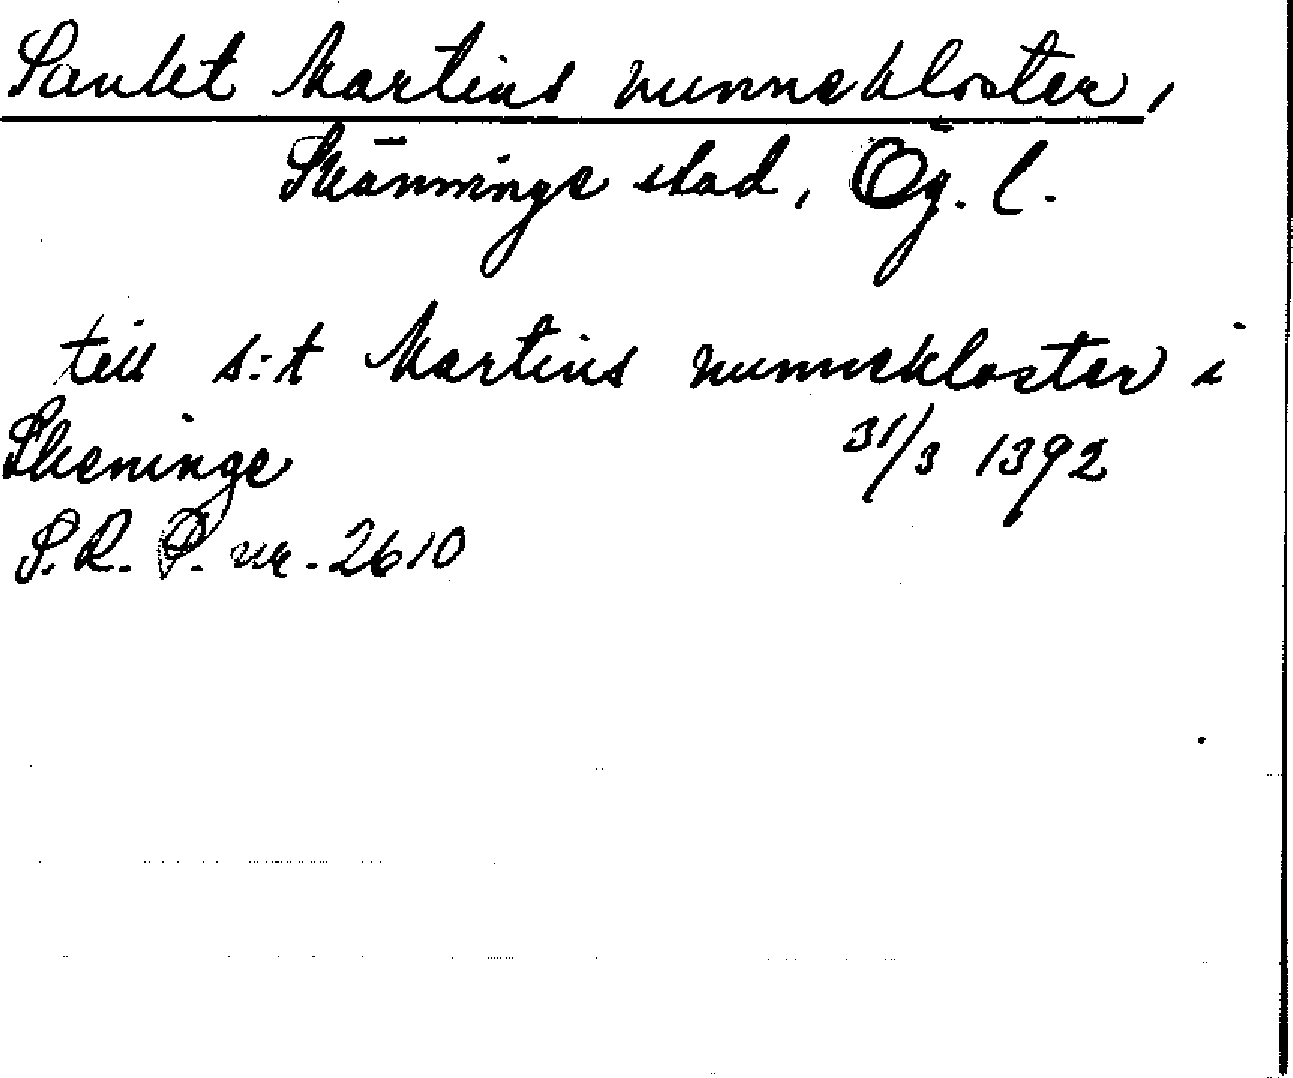 Sankt Martins nunnekloster,
Skänninge stad, Ög. l.
till s:t Martins nunnekloster i
Skeninge 31/3 1392
S.R.P. nr. 2610